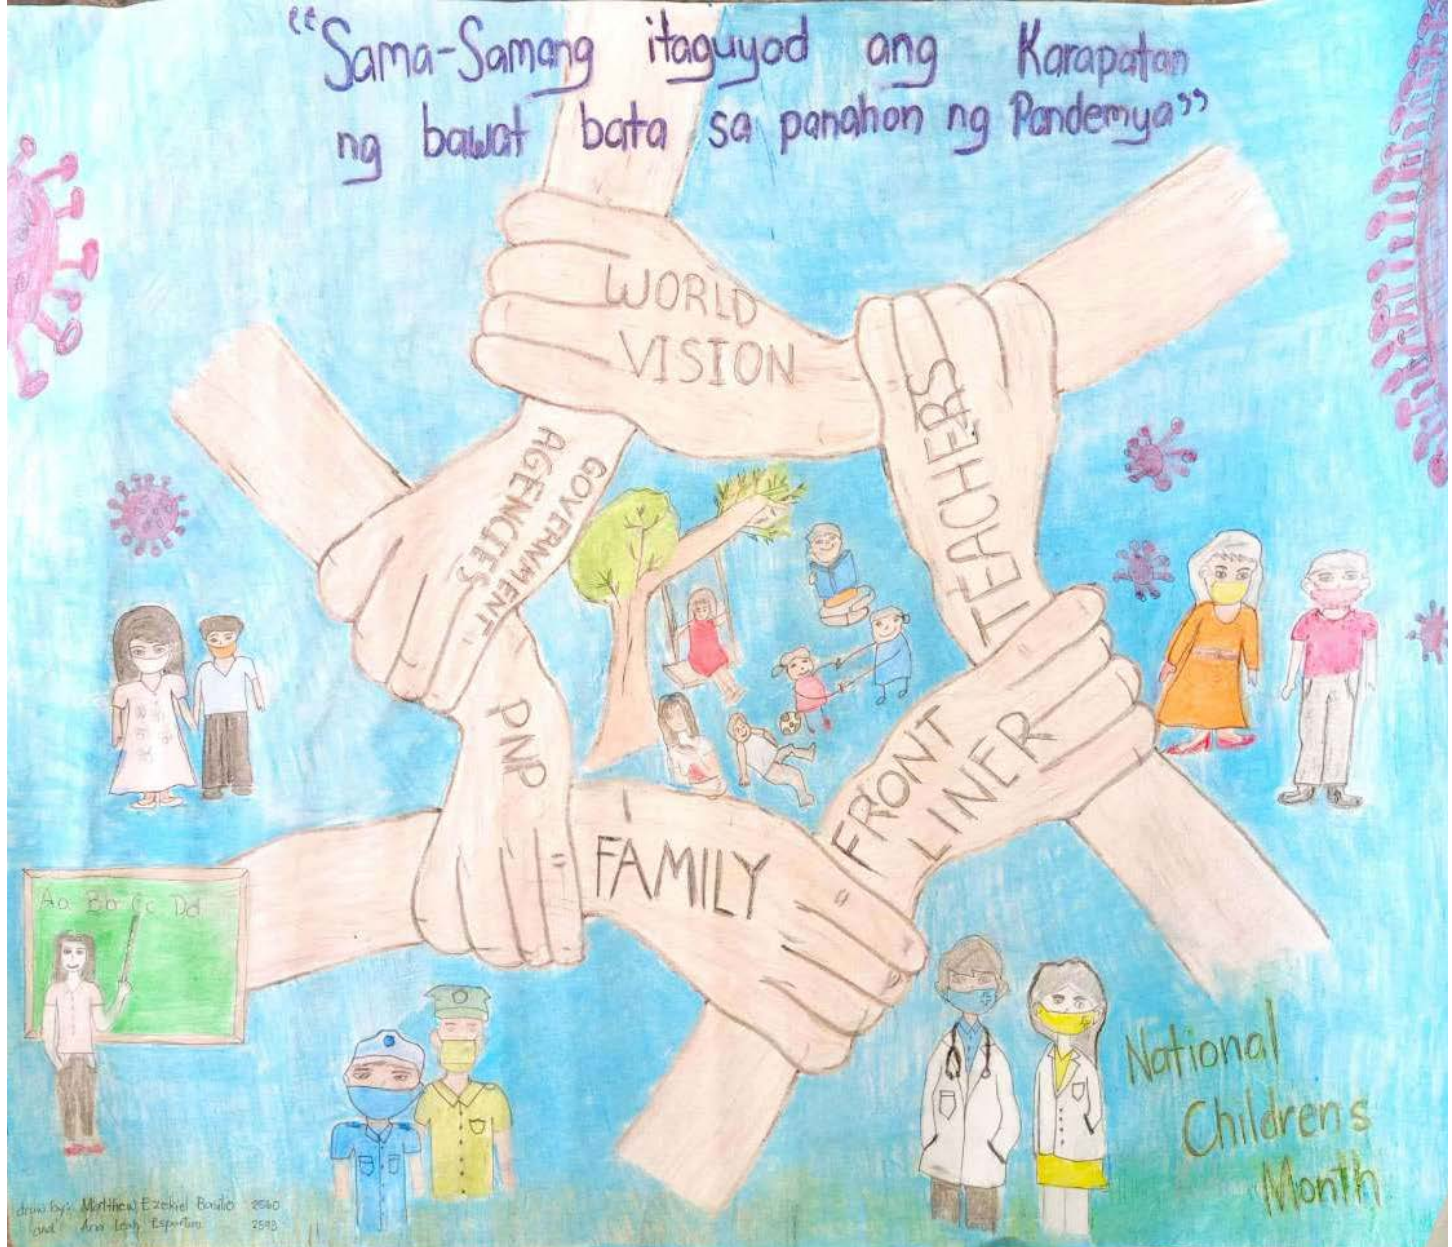 “Sama-Samang itaguyod ang Karapatan
ng bawat bata sa panahon ng Pandemya”
WORLD
VISION
TEACHERS
GOVERNMENT
AGENCIES
PNP
FAMILY
FRONT
LINER
Aa Bb Cc Dd
National
Childrens
Month
draw by: Matthew Ezekiel Basilio 2560
and Ana Leah 2593